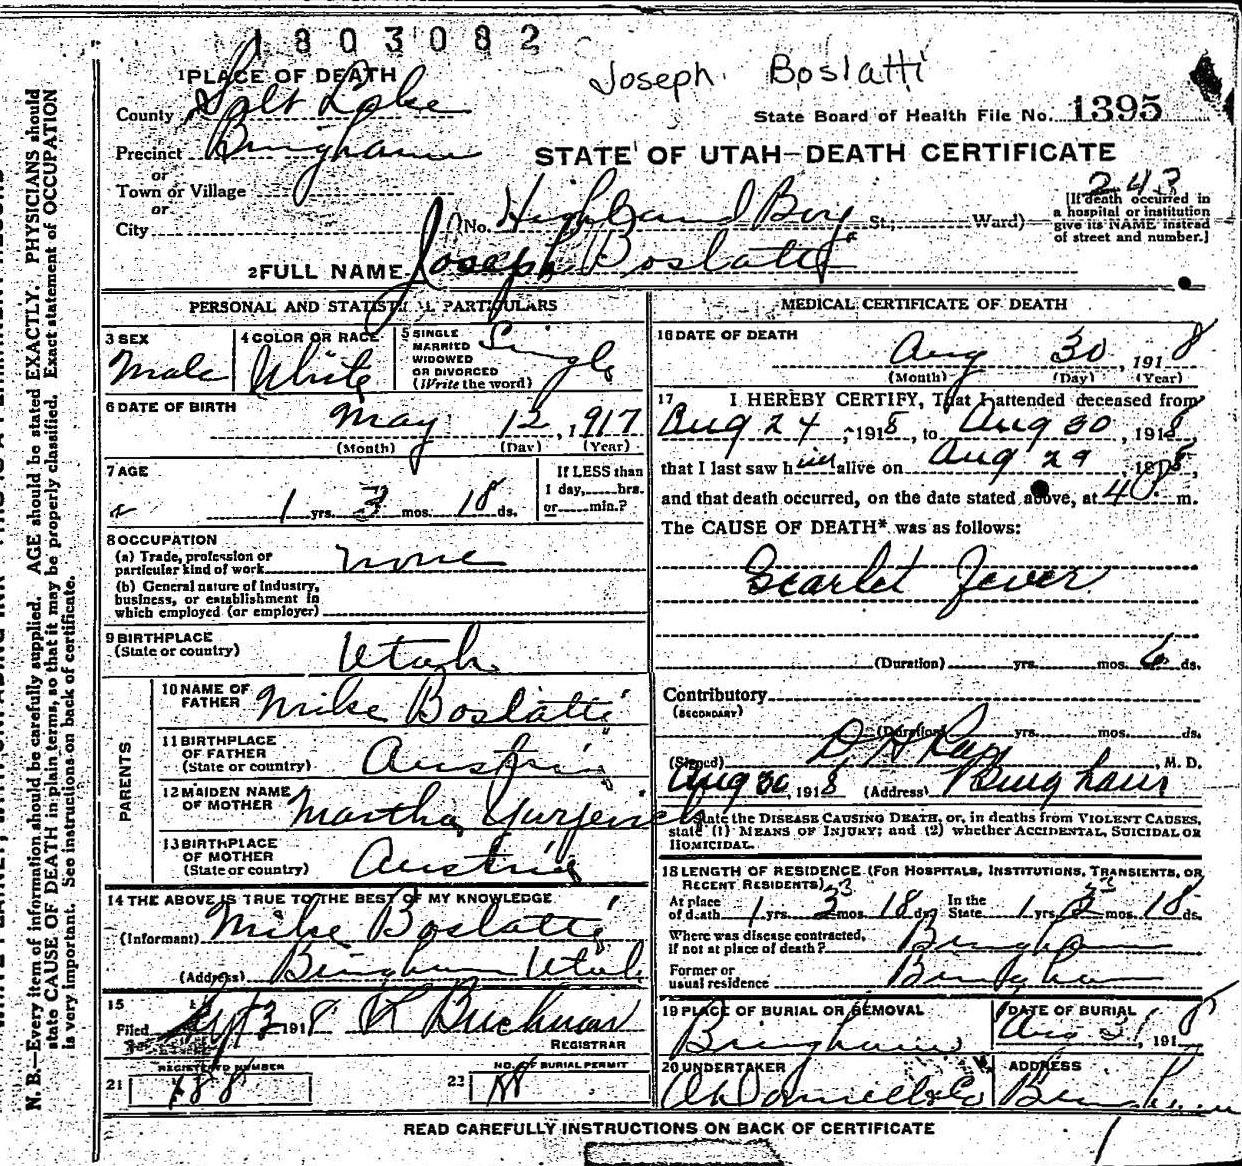 1803082
Joseph Boslatti
1 PLACE OF DEATH
County Salt Lake
State Board of Health File No. 1395
Precinct Bingham
STATE OF UTAH—DEATH CERTIFICATE
or
Town or Village
or
City
(No. Highland Boy St.; Ward)
243
[If death occurred in
a hospital or institution
give its NAME instead
of street and number.]
2 FULL NAME Joseph Boslatti
PERSONAL AND STATISTICAL PARTICULARS
3 SEX
Male
4 COLOR OR RACE
White
5 SINGLE
MARRIED
WIDOWED
OR DIVORCED
(Write the word)
Single
6 DATE OF BIRTH
May 12, 1917
(Month) (Day) (Year)
7 AGE
1 yrs. 3 mos. 18 ds.
If LESS than
1 day, hrs.
or min.?
8 OCCUPATION
(a) Trade, profession or
particular kind of work none
(b) General nature of industry,
business, or establishment in
which employed (or employer)
9 BIRTHPLACE
(State or country) Utah
PARENTS
10 NAME OF
FATHER Mike Boslatti
11 BIRTHPLACE
OF FATHER
(State or country) Austria
12 MAIDEN NAME
OF MOTHER Martha Yurjenich
13 BIRTHPLACE
OF MOTHER
(State or country) Austria
14 THE ABOVE IS TRUE TO THE BEST OF MY KNOWLEDGE
(Informant) Mike Boslatti
(Address) Bingham Utah
15
Filed Sept 3 1918 R Buchman
REGISTRAR
REGISTERED NUMBER
21 188
NO. OF BURIAL PERMIT
22
MEDICAL CERTIFICATE OF DEATH
16 DATE OF DEATH
Aug 30, 1918
(Month) (Day) (Year)
17 I HEREBY CERTIFY, That I attended deceased from
Aug 24, 1918, to Aug 30, 1918
that I last saw him alive on Aug 29, 1918,
and that death occurred, on the date stated above, at 4 P m.
The CAUSE OF DEATH* was as follows:
Scarlet Fever
(Duration) yrs. mos. 6 ds.
Contributory
(SECONDARY)
(Duration) yrs. mos. ds.
(Signed) D H Ray, M. D.
Aug 30, 1918 (Address) Bingham
State the DISEASE CAUSING DEATH, or, in deaths from VIOLENT CAUSES,
state (1) MEANS OF INJURY; and (2) whether ACCIDENTAL, SUICIDAL OR
HOMICIDAL.
18 LENGTH OF RESIDENCE (FOR HOSPITALS, INSTITUTIONS, TRANSIENTS, OR
RECENT RESIDENTS)
At place
of death 1 yrs. 3 mos. 18 ds. In the
State 1 yrs. 3 mos. 18 ds.
Where was disease contracted,
if not at place of death? Bingham
Former or
usual residence Bingham
19 PLACE OF BURIAL OR REMOVAL
Bingham
DATE OF BURIAL
Aug 31, 1918
20 UNDERTAKER
ADDRESS
Bingham
READ CAREFULLY INSTRUCTIONS ON BACK OF CERTIFICATE
N. B.—Every item of information should be carefully supplied. AGE should be stated EXACTLY. PHYSICIANS should
state CAUSE OF DEATH in plain terms, so that it may be properly classified. Exact statement of OCCUPATION
is very important. See instructions on back of certificate.